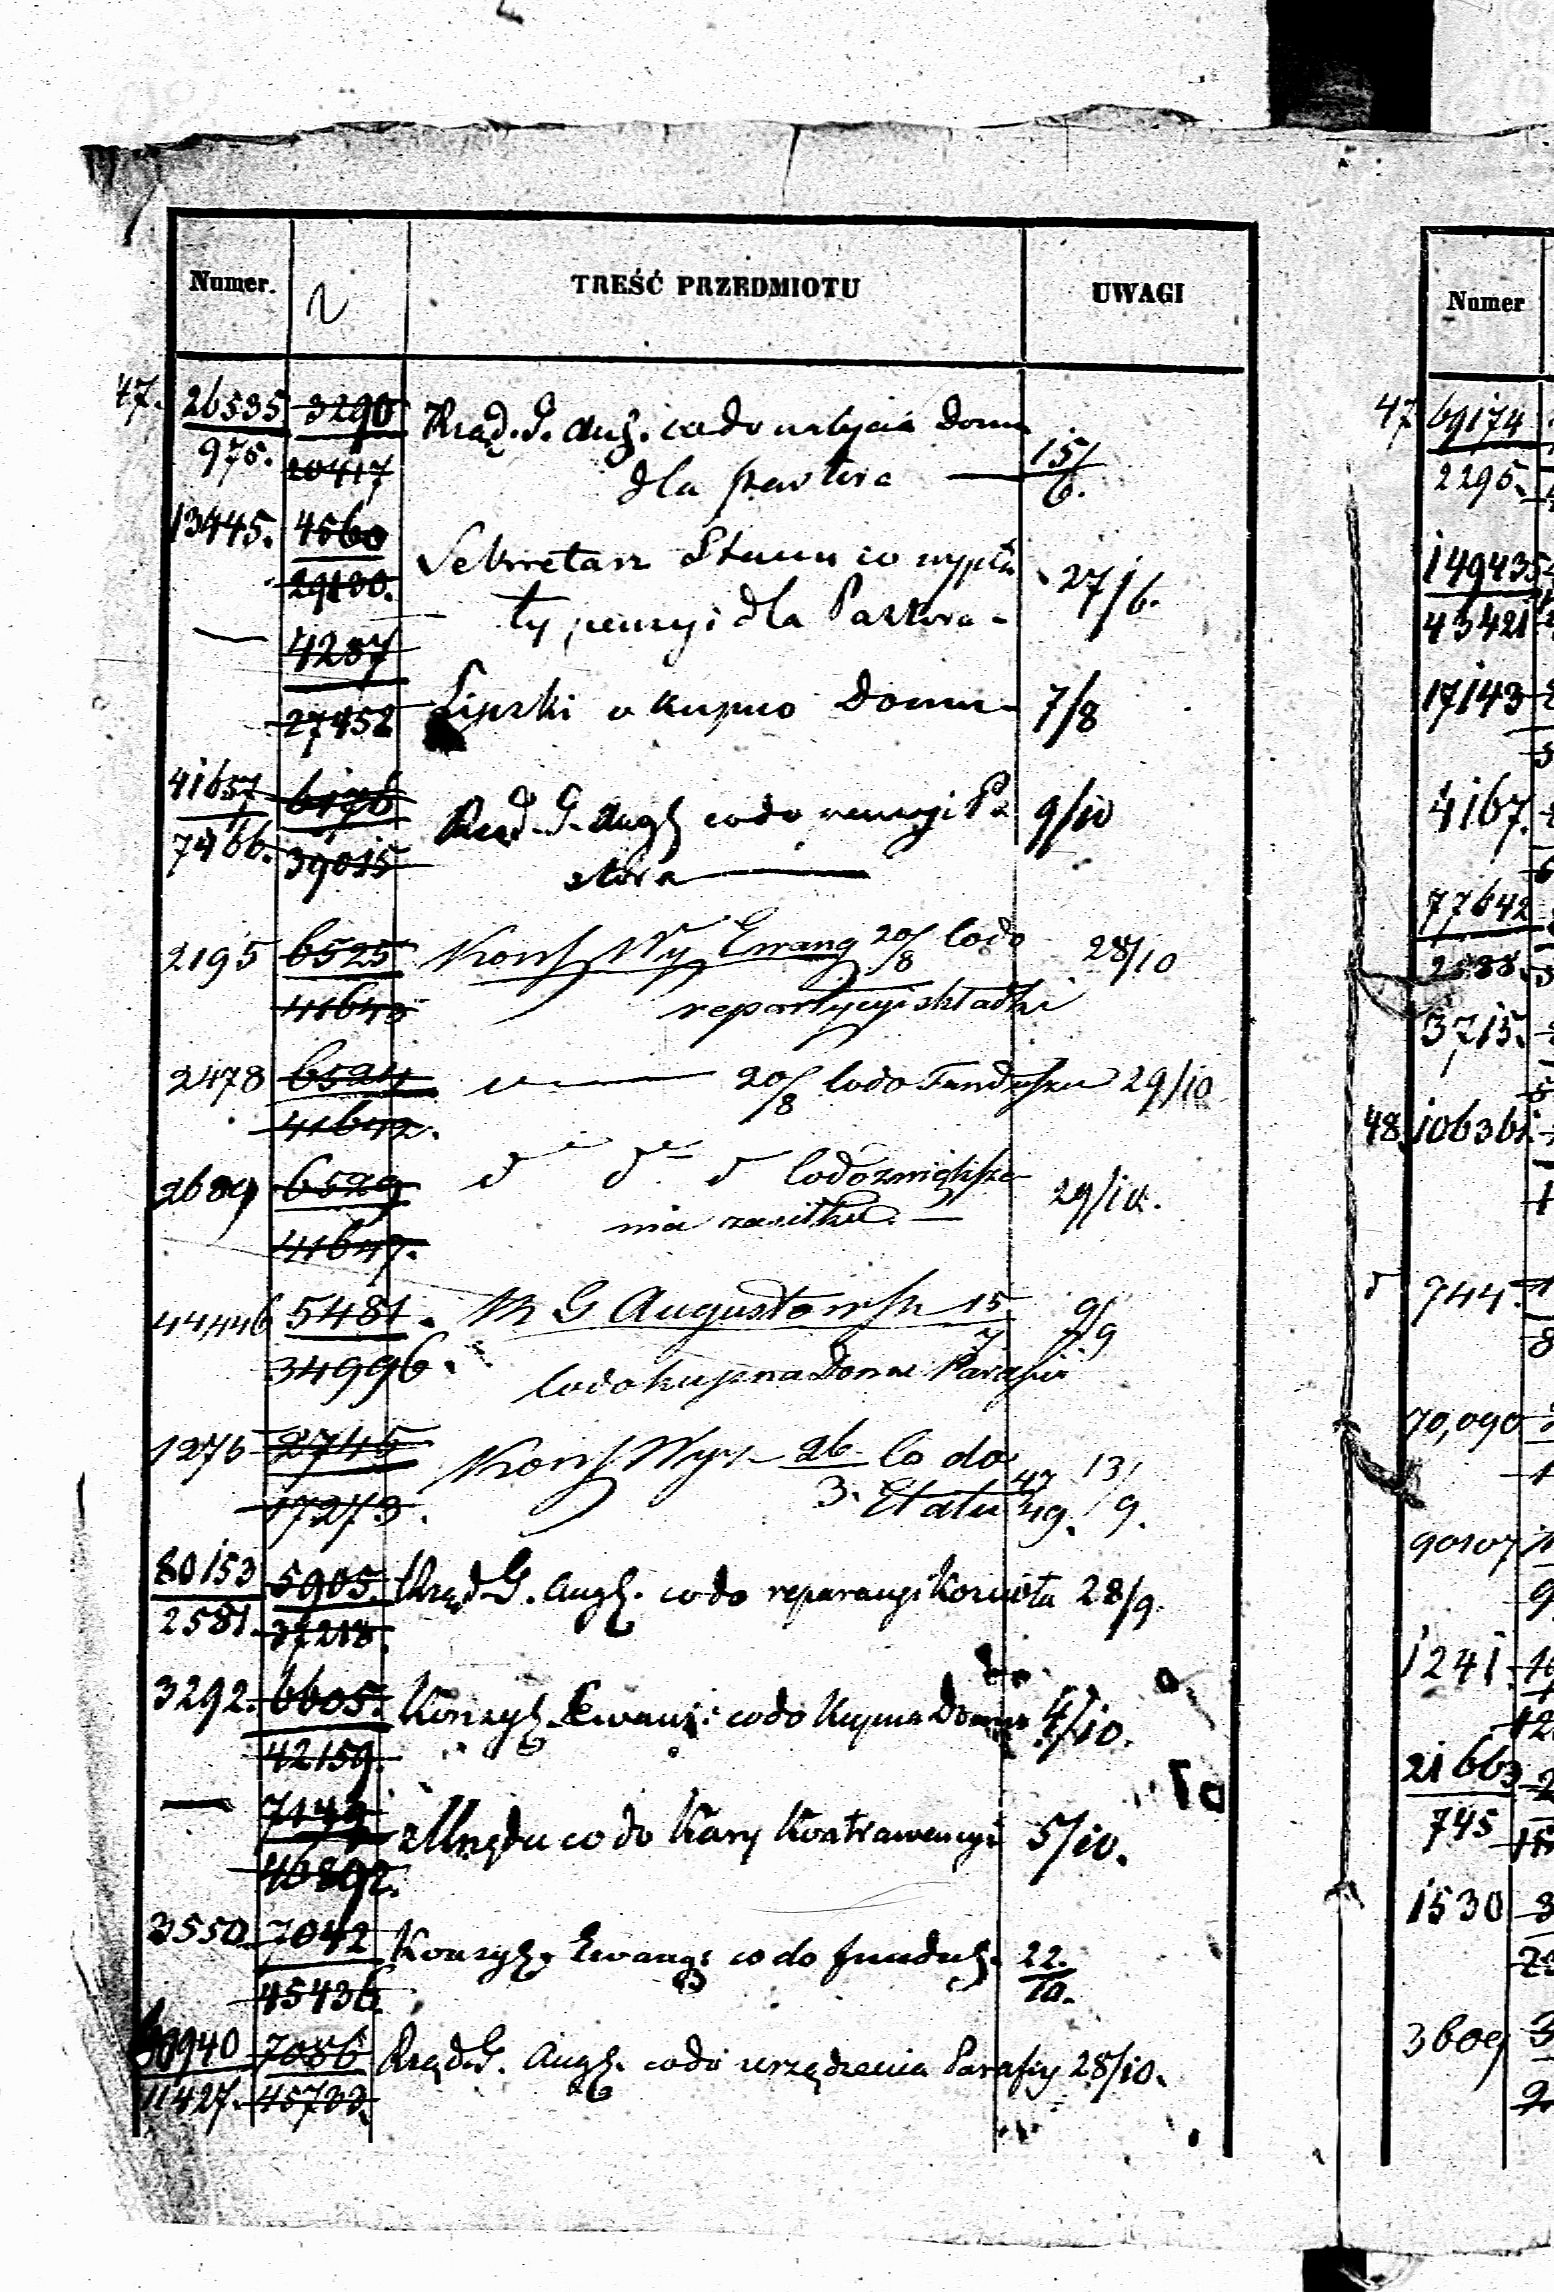 Numer. N TREŚĆ PRZEDMIOTU UWAGI
47. 26535 3290 Rząd. G. Aug. co do nabycia Domu
975. 20417 dla pastora — 15/6.
13445. 4560 Sekretarz Stanu co wypła
29180. ty pensyi dla Pastora - 27/6.
— 4287
27452 Lipski o kupno Domu - 7/8
41657 6176 Rząd. G. Aug co do pensyi Pa 9/10
7466. 39015 stora —
2195 6525 Kons Wy Ewang 20/8 co do 28/10
41643 repartycyi składki
2478 6524 — 20/8 co do Funduszu 29/10
41642.
2689 6529 d d d co do zwiększe
41647. nia zasiłku. — 29/10.
44446 5481. R G Augustowsk 15/7 9/9
34996. co do kupna Domu Parafii
1276 2745 Kons Wyz 26/3. co do 13/9.
17273. Etatu 47/49.
80153 5905. Rząd G. Aug. co do reparacyi Kościoła 28/9.
2581. 37218.
3292. 6605. Konsys. Ewang: co do Kupna Domu 4/10.
42159.
— 7143 z Urzędu co do Kary Kontrawencyi 5/10.
46892.
3550. 7042 Konsys. Ewang: co do fundusz. 22./10.
45436.
7086 Rząd. G. Aug. co do urządzenia Parafiy 28/10.
11427. 45733.
Numer
47 69174
2295.
149435
43421
17143
4167.
77642
2588.
3715.
48. 106361.
d 744.
70,090
90107
1241.
21663
745
1530
3609